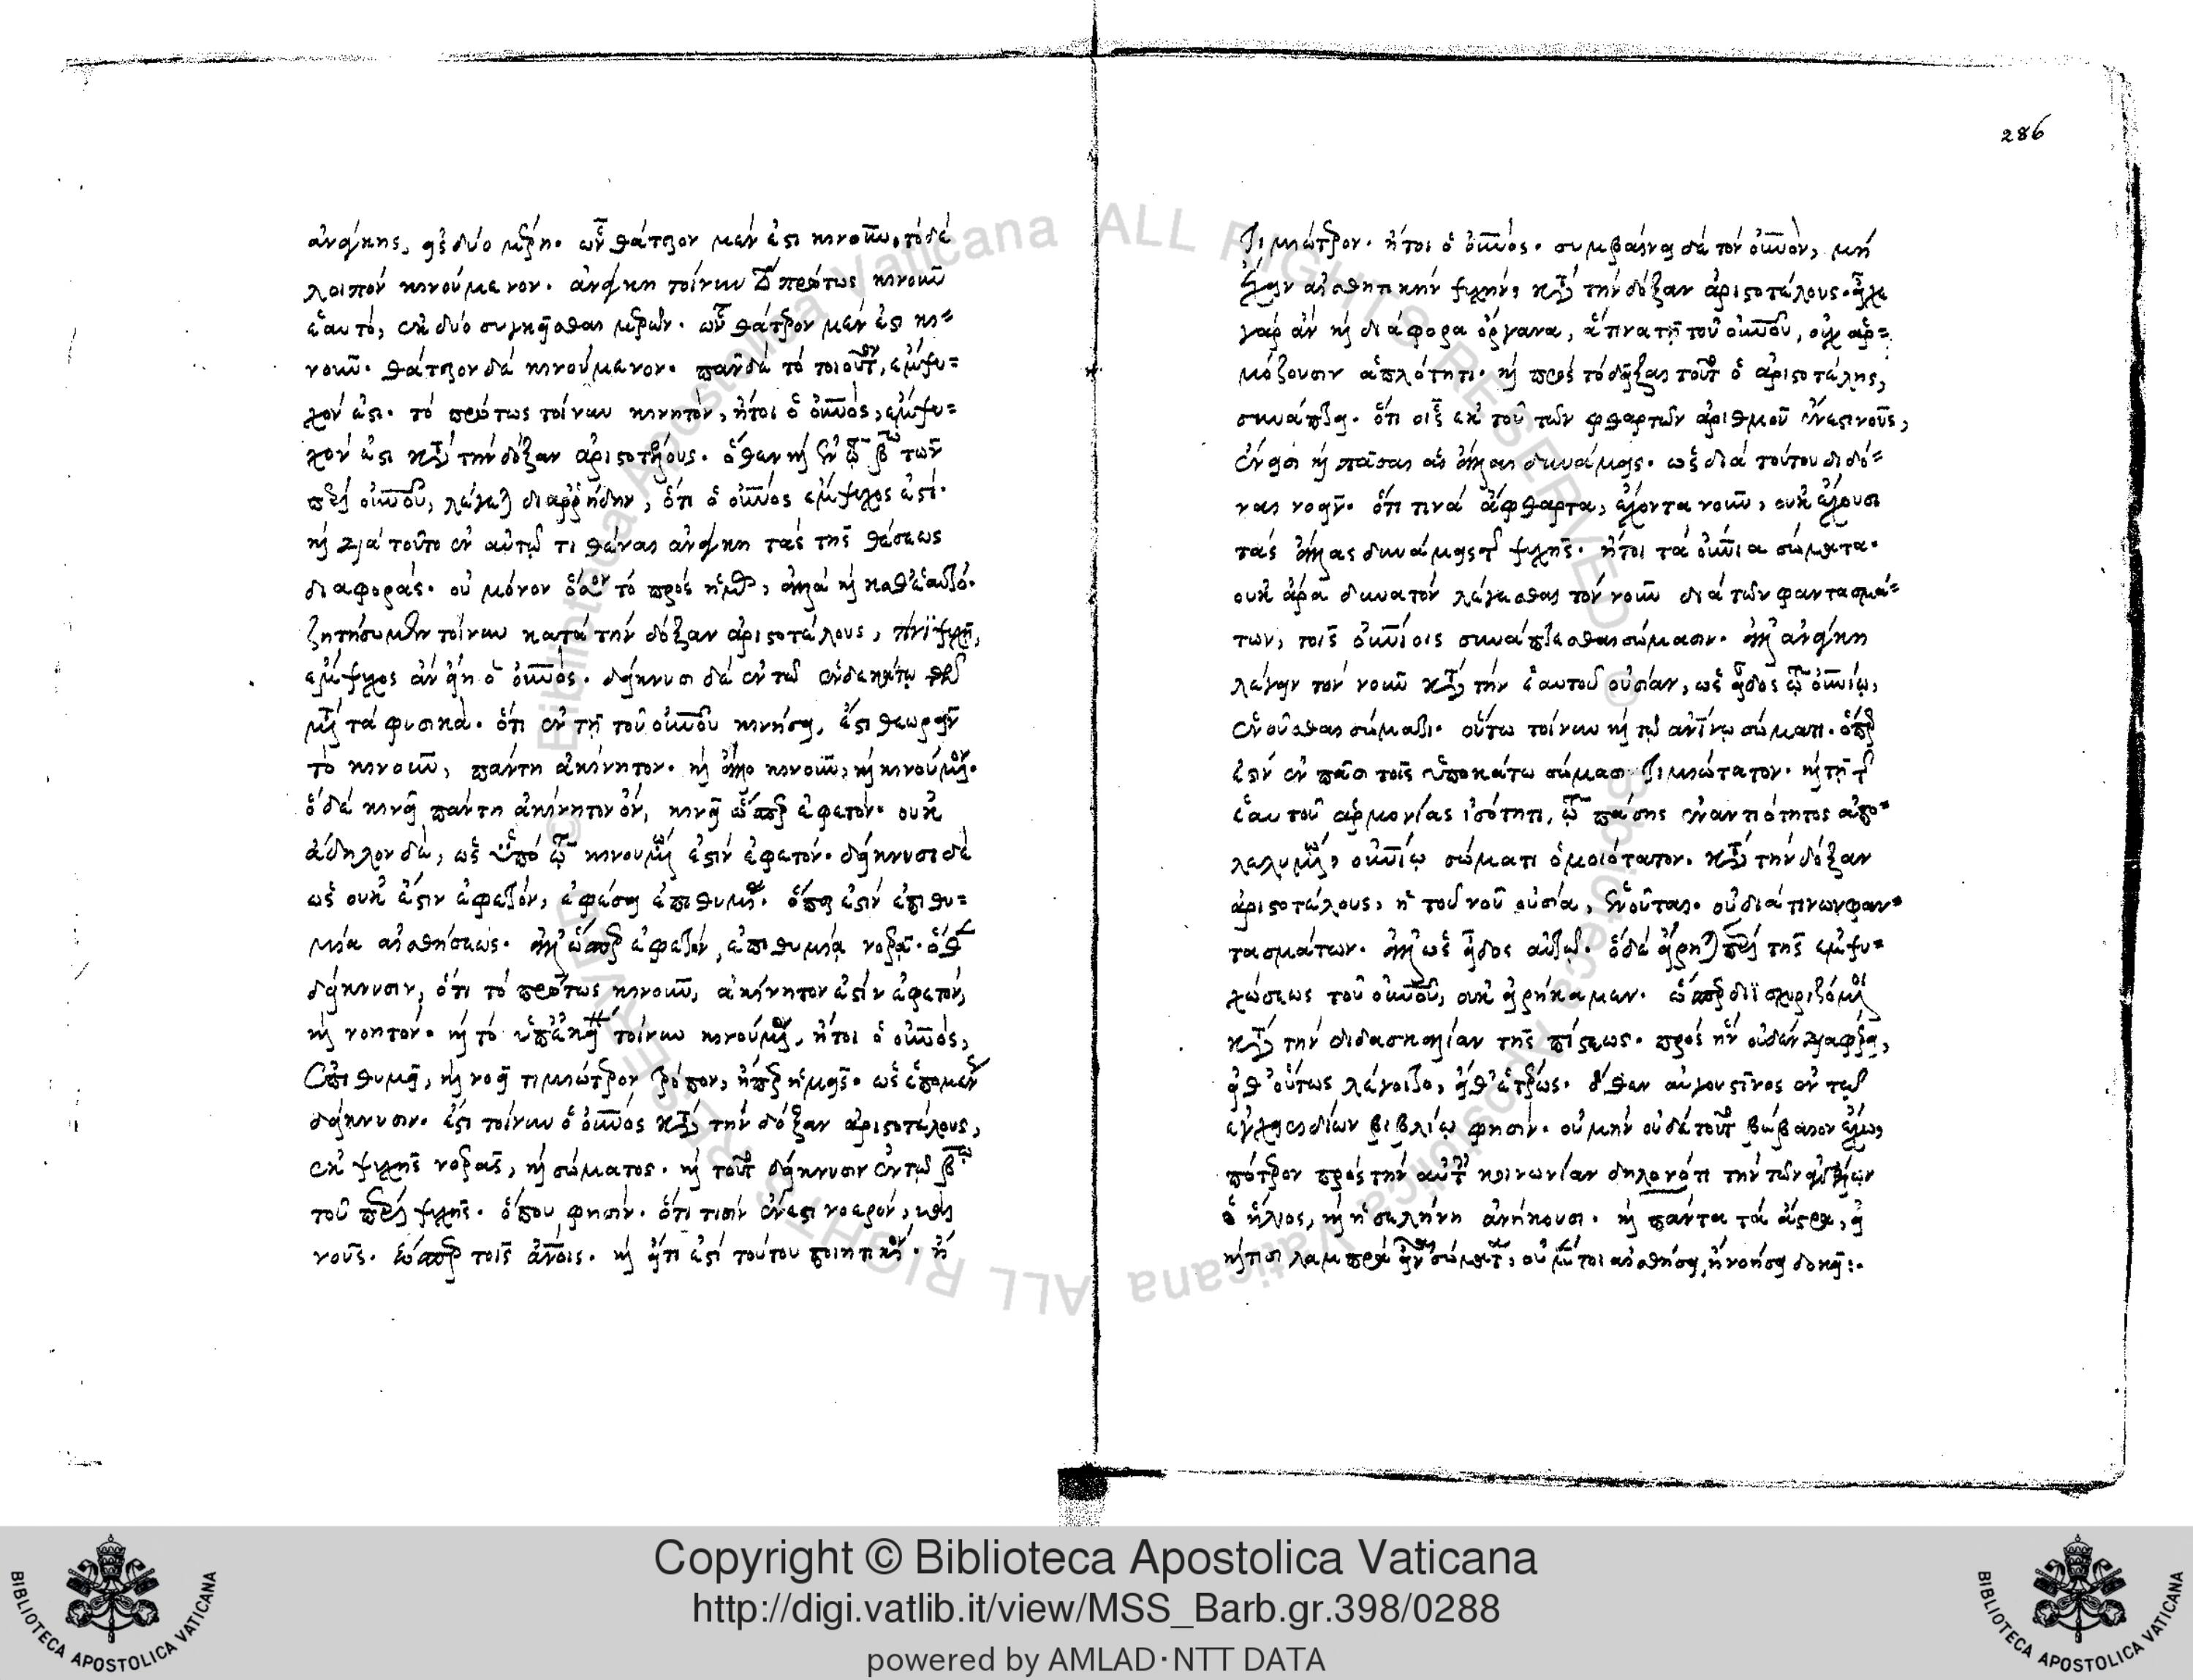 ἀνάγκης, εἰς δύο μέρη. ὧν θάτερον μέν ἐστι κινοῦν, τὸ δὲ
λοιπὸν κινούμενον. ἀνάγκη τοίνυν τὸ πρώτως κινοῦν
ἑαυτό, ἐκ δύο συγκεῖσθαι μερῶν. ὧν θάτερον μέν ἐστι κι=
νοῦν. θάτερον δὲ κινούμενον. πᾶν δὲ τὸ τοιοῦτον, ἔμψυ=
χόν ἐστι. τὸ πρώτως τοίνυν κινητόν, ἤτοι ὁ οὐνος, ἔμψυ=
χόν ἐστι κατὰ τὴν δόξαν ἀριστοτέλους. ὅθεν καὶ ἐν τῷ βω τῶν
περὶ οὐνου, λέγεται διαρρήδην, ὅτι ὁ οὐνος ἔμψυχός ἐστι.
καὶ διὰ τοῦτο ἐν αὐτῷ τιθέναι ἀνάγκη τὰς τῆς θέσεως
διαφοράς. οὐ μόνον ὅσον τὸ πρὸς ἡμᾶς, ἀλλὰ καὶ καθ' ἑαυτό.
ζητήσωμεν τοίνυν κατὰ τὴν δόξαν ἀριστοτέλους, τίνι ψυχῇ,
ἔμψυχος ἂν εἴη ὁ οὐνος. δείκνυσι δὲ ἐν τῷ ἑνδεκάτῳ τῶν
μετὰ τὰ φυσικά. ὅτι ἐν τῇ τοῦ οὐνου κινήσει, ἔστι θεωρεῖν
τὸ κινοῦν, πάντῃ ἀκίνητον. καὶ ἄλλο κινοῦν, καὶ κινούμενον.
ὃ δὲ κινεῖ πάντῃ ἀκίνητον ὄν, κινεῖ ὥσπερ ἐφετόν. οὐκ
ἄδηλον δὲ, ὡς ὑπὸ τῷ κινουμένῳ ἐστὶν ἐφετόν. δείκνυσι δὲ
ὡς οὐκ ἔστιν ἐφετόν, ἐφέσει ἐπιθυμίας. ὅπερ ἐστὶν ἐπιθυ=
μία αἰσθήσεως. ἀλλ' ὥσπερ ἐφετόν, ἐπιθυμίᾳ νοερᾷ. ὅθεν
δείκνυσιν, ὅτι τὸ πρώτως κινοῦν, ἀκίνητόν ἐστιν ἐφετόν,
καὶ νοητόν. καὶ τὸ ὑπ' ἐκείνου τοίνυν κινούμενον, ἤτοι ὁ οὐνος,
ἐπιθυμεῖ, καὶ νοεῖ τιμιώτερον τρόπον, ἤπερ ἡμεῖς. ὡς ἑπομένως
δείκνυσιν. ἔστι τοίνυν ὁ οὐνος κατὰ τὴν δόξαν ἀριστοτέλους,
ἐκ ψυχῆς νοερᾶς, καὶ σώματος. καὶ τοῦτο δείκνυσιν ἐν τῷ βῳ
τοῦ περὶ ψυχῆς. ὅπου φησίν. ὅτι τισὶν ἔνεστι νοερόν, καὶ
νοῦς. ὥσπερ τοῖς ἀνοις. καὶ εἴ τι ἐστὶ τούτου ποιητικόν. ἢ
286
τιμιώτερον. ἤτοι ὁ οὐνος. συμβαίνει δὲ τὸν οὐνον, μὴ
ἔχειν αἰσθητικὴν ψυχήν, κατὰ τὴν δόξαν ἀριστοτέλους. εἶχε
γὰρ ἂν καὶ διάφορα ὄργανα, ἅτινα τῇ τοῦ οὐνου, οὐχ ἁρ=
μόζουσιν ἁπλότητι. καὶ πρὸς τὸ δεῖξαι τοῦτο ὁ ἀριστοτέλης,
συνάπτει. ὅτι οἷς ἐκ τοῦ τῶν φθαρτῶν ἀριθμοῦ ἔνεστι νοῦς,
ἔνεισι καὶ πᾶσαι αἱ ἄλλαι δυνάμεις. ὡς διὰ τούτου διδό=
ναι νοεῖν. ὅτι τινὰ ἄφθαρτα, ἔχοντα νοῦν, οὐκ ἔχουσι
τὰς ἄλλας δυνάμεις τῆς ψυχῆς. ἤτοι τὰ οὐνια σώματα.
οὐκ ἄρα δυνατὸν λέγεσθαι τὸν νοῦν διὰ τῶν φαντασμά=
των, τοῖς οὐνίοις συνάπτεσθαι σώμασιν. ἀλλ' ἀνάγκη
λέγειν τὸν νοῦν κατὰ τὴν ἑαυτοῦ οὐσίαν, ὡς εἶδος τῷ οὐνίῳ,
ἑνοῦσθαι σώματι. οὕτω τοίνυν καὶ τῷ ἀνίνῳ σώματι. ὅπερ
ἐστὶν ἐν πᾶσι τοῖς ὑποκάτω σώμασι τιμιώτατον. καὶ τῇ τῆς
ἑαυτοῦ ἁρμονίας ἰσότητι, τῷ πάσης ἐναντιότητος ἀπο=
λελυμένῳ, οὐνίῳ σώματι ὁμοιότατον. κατὰ τὴν δόξαν
ἀριστοτέλους, ἡ τοῦ νοῦ οὐσία, ἑνοῦται. οὐ διά τινων φαν=
τασμάτων. ἀλλ' ὡς εἶδος αὐτῷ. ὃ δὲ εἴρηται περὶ τῆς ἐμψυ=
χώσεως τοῦ οὐνου, οὐκ εἰρήκαμεν. ὥσπερ διϊσχυριζόμενοι
κατὰ τὴν διδασκαλίαν τῆς πίστεως. πρὸς ἣν οὐδὲν διαφέρει,
εἴθ' οὕτως λέγοιτο, εἴθ' ἑτέρως. ὅθεν αὐγουστῖνος ἐν τῷ
ἐγχειριδίων βιβλίῳ φησίν. οὐ μὴν οὐδὲ τοῦτο βέβαιον ἔχω,
πότερον πρὸς τὴν αὐτὴν κοινωνίαν δηλονότι τὴν τῶν ἀγγέλων
ὁ ἥλιος, καὶ ἡ σελήνη ἀνήκουσι. καὶ πάντα τὰ ἄστρα, εἰ
καί τισι λαμπρὰ εἶναι σώματα, οὐ μέντοι αἰσθήσει, ἢ νοήσει δοκεῖ:.
Copyright © Biblioteca Apostolica Vaticana
http://digi.vatlib.it/view/MSS_Barb.gr.398/0288
powered by AMLAD·NTT DATA